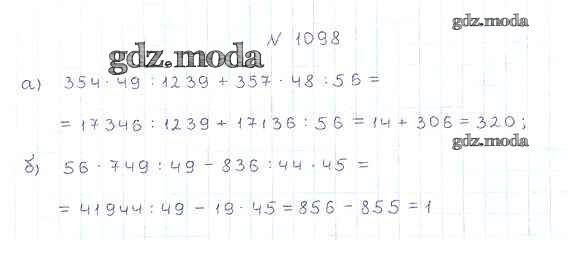 gdz.moda
N 1098
gdz.moda
а) 354 · 49 : 1239 + 357 · 48 : 56 =
= 17346 : 1239 + 17136 : 56 = 14 + 306 = 320;
gdz.moda
б) 56 · 749 : 49 - 836 : 44 · 45 =
= 41944 : 49 - 19 · 45 = 856 - 855 = 1